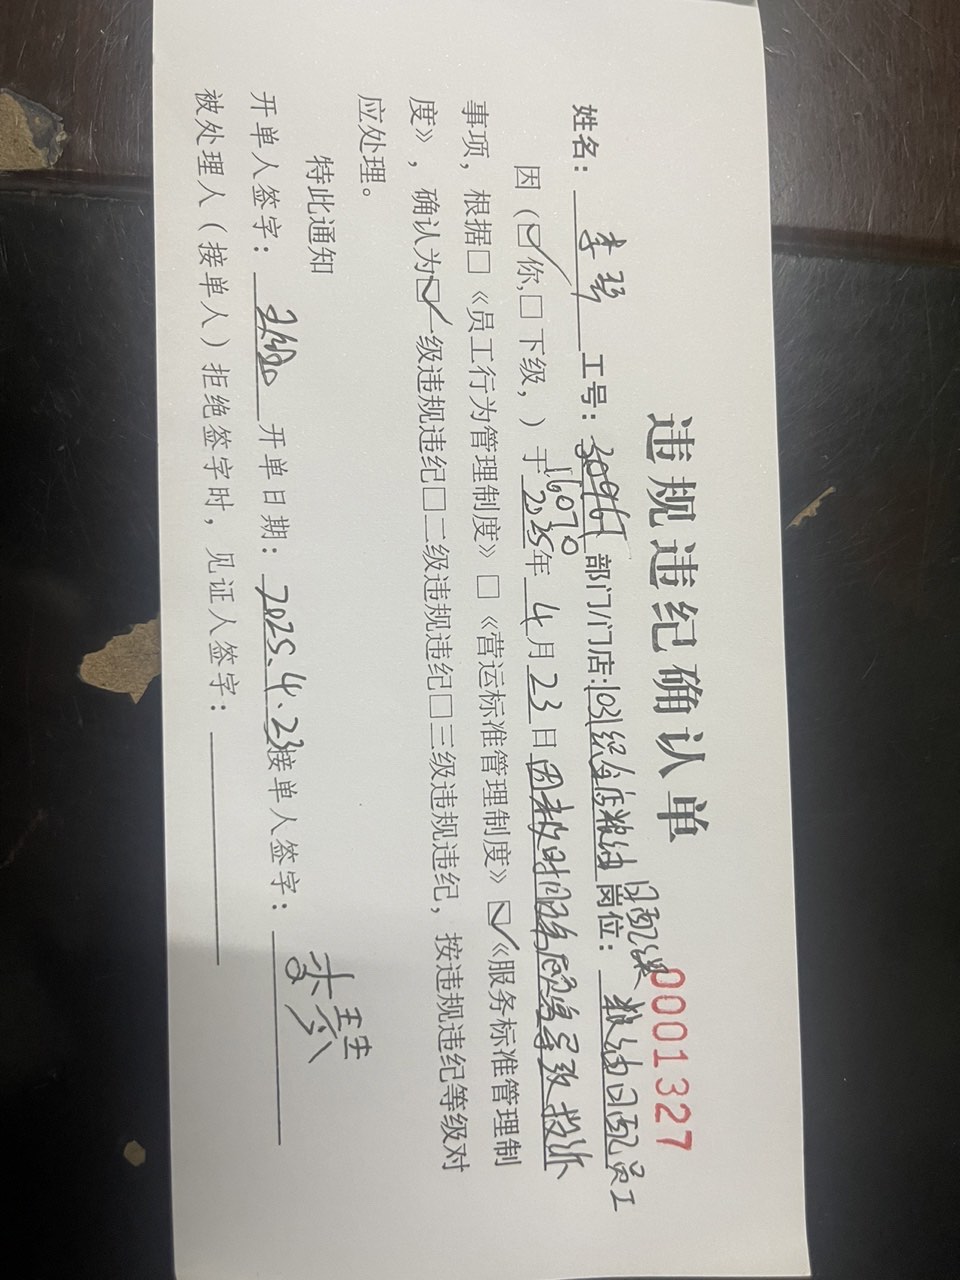 违规违纪确认单
0001327
姓名：李琴 工号：30961 16070 部门/门店:1031综合店粮油日配课 岗位：粮油日配员工
因（☑你,□下级，）于2025年4月23日因未及时回
事项，根据□《员工行为管理制度》□《营运标准管理制度》☑《服务标准管理制
度》，确认为☑一级违规违纪□二级违规违纪□三级违规违纪，按违规违纪等级对
应处理。
特此通知
开单人签字： 开单日期：2025.4.23 接单人签字：李琴
被处理人（接单人）拒绝签字时，见证人签字：